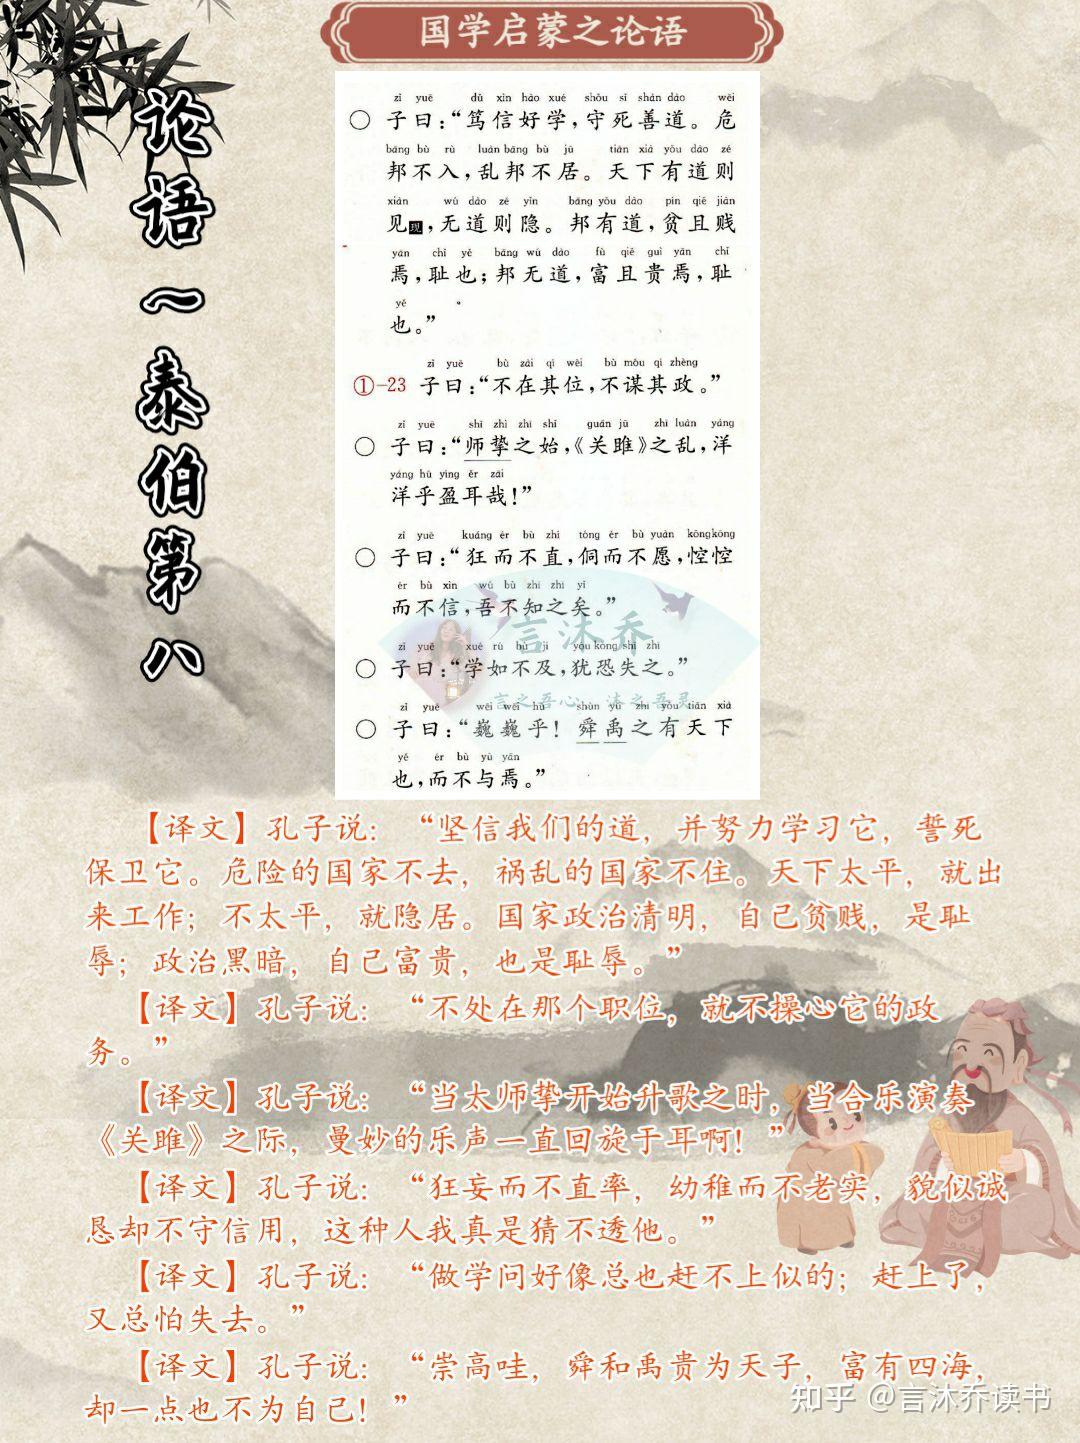 国学启蒙之论语
论语～泰伯第八
zǐ yuē dǔ xìn hào xué shǒu sǐ shàn dào wēi
○ 子曰：“笃信好学，守死善道。危
bāng bù rù luàn bāng bù jū tiān xià yǒu dào zé
邦不入，乱邦不居。天下有道则
xiàn wú dào zé yǐn bāng yǒu dào pín qiě jiàn
见现，无道则隐。邦有道，贫且贱
yān chǐ yě bāng wú dào fù qiě guì yān chǐ
焉，耻也；邦无道，富且贵焉，耻
yě
也。”
zǐ yuē bù zài qí wèi bù móu qí zhèng
①-23 子曰：“不在其位，不谋其政。”
zǐ yuē shī zhì zhī shǐ guān jū zhī luàn yáng
○ 子曰：“师挚之始，《关雎》之乱，洋
yáng hū yíng ěr zāi
洋乎盈耳哉！”
zǐ yuē kuáng ér bù zhí tóng ér bù yuàn kōng kōng
○ 子曰：“狂而不直，侗而不愿，悾悾
ér bù xìn wú bù zhī zhī yǐ
而不信，吾不知之矣。”
zǐ yuē xué rú bù jí yóu kǒng shī zhī
○ 子曰：“学如不及，犹恐失之。”
zǐ yuē wēi wēi hū shùn yǔ zhī yǒu tiān xià
○ 子曰：“巍巍乎！舜禹之有天下
yě ér bù yù yān
也，而不与焉。”
言沐乔
言之吾心，沐之吾灵
【译文】孔子说：“坚信我们的道，并努力学习它，誓死
保卫它。危险的国家不去，祸乱的国家不住。天下太平，就出
来工作；不太平，就隐居。国家政治清明，自己贫贱，是耻
辱；政治黑暗，自己富贵，也是耻辱。”
【译文】孔子说：“不处在那个职位，就不操心它的政
务。”
【译文】孔子说：“当太师挚开始升歌之时，当合乐演奏
《关雎》之际，曼妙的乐声一直回旋于耳啊！”
【译文】孔子说：“狂妄而不直率，幼稚而不老实，貌似诚
恳却不守信用，这种人我真是猜不透他。”
【译文】孔子说：“做学问好像总也赶不上似的；赶上了，
又总怕失去。”
【译文】孔子说：“崇高哇，舜和禹贵为天子，富有四海，
却一点也不为自己！”
知乎 @言沐乔读书